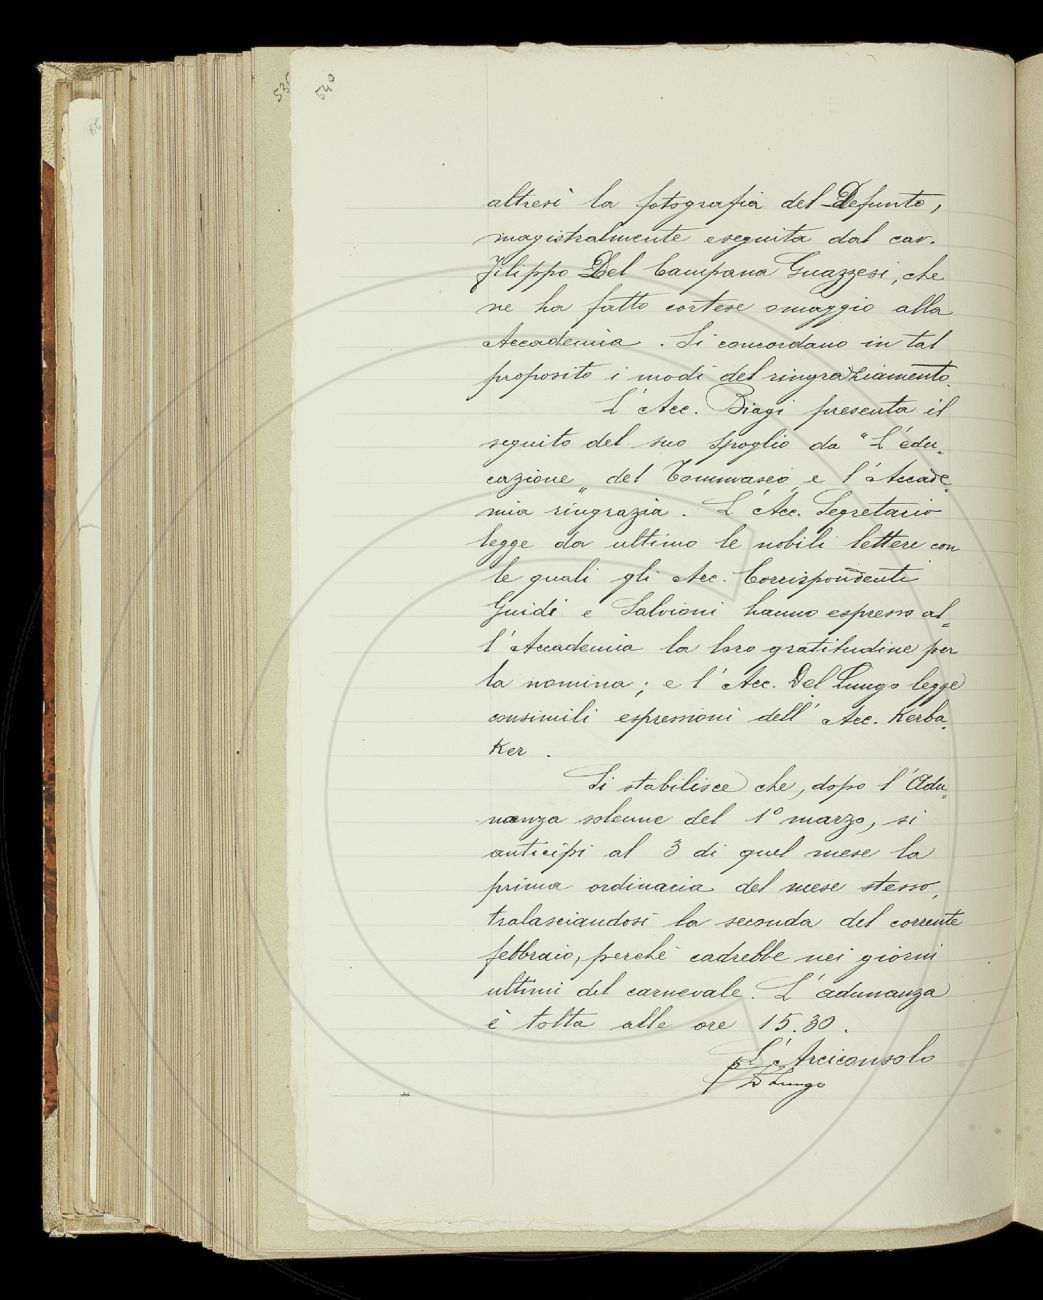 535
540
altresì la fotografia del Defunto,
magistralmente eseguita dal cav.
Filippo Del Campana Guazzesi, che
ne ha fatto cortese omaggio alla
Accademia. Si concordano in tal
proposito i modi del ringraziamento.
L'Acc. Biagi presenta il
seguito del suo spoglio da "L'edu=
cazione„ del Tommaseo, e l'Accade=
mia ringrazia. L'Acc. Segretario
legge da ultimo le nobili lettere con
le quali gli Acc. Corrispondenti
Guidi e Salvioni hanno espresso al=
l'Accademia la loro gratitudine per
la nomina; e l'Acc. Del Lungo legge
consimili espressioni dell'Acc. Kerba=
ker.
Si stabilisce che, dopo l'Adu=
nanza solenne del 1° marzo, si
anticipi al 3 di quel mese la
prima ordinaria del mese stesso,
tralasciandosi la seconda del corrente
febbraio, perchè cadrebbe nei giorni
ultimi del carnevale. L'adunanza
è tolta alle ore 15.30.
p L'Arciconsolo
D Lungo